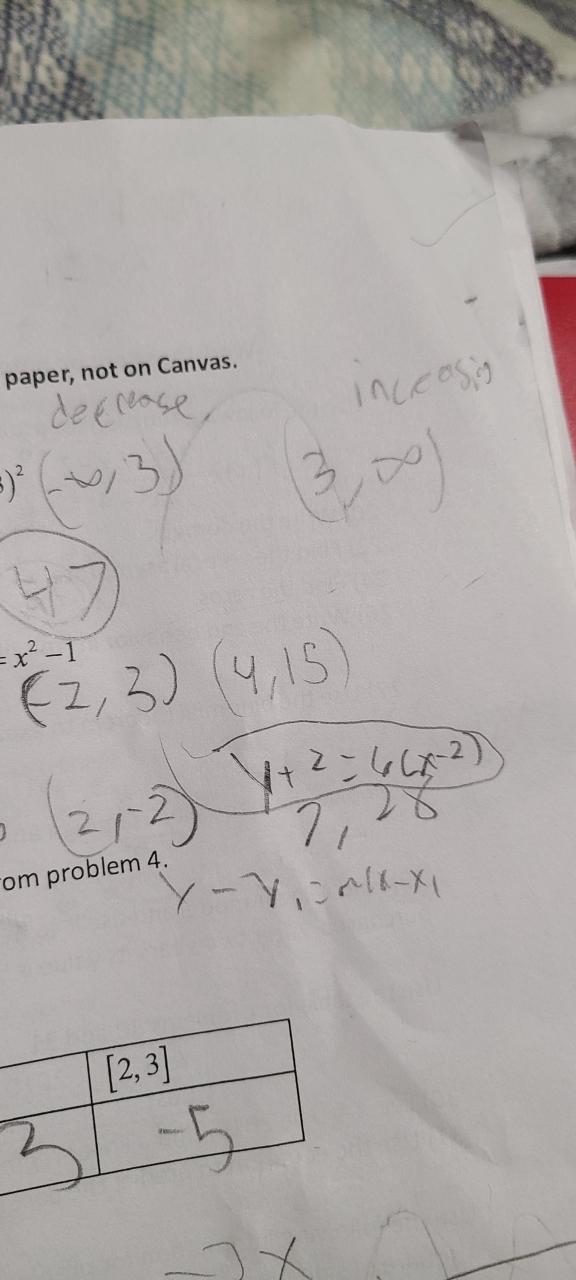 paper, not on Canvas.
decrease increasing
)² (-∞, 3) (3, ∞)
47
= x² − 1
(-2, 3) (4, 15)
y + 2 = 6(x-2)
(2, -2) 7, 28
om problem 4.
y - y₁ = m(x-x₁
[2, 3]
3 -5